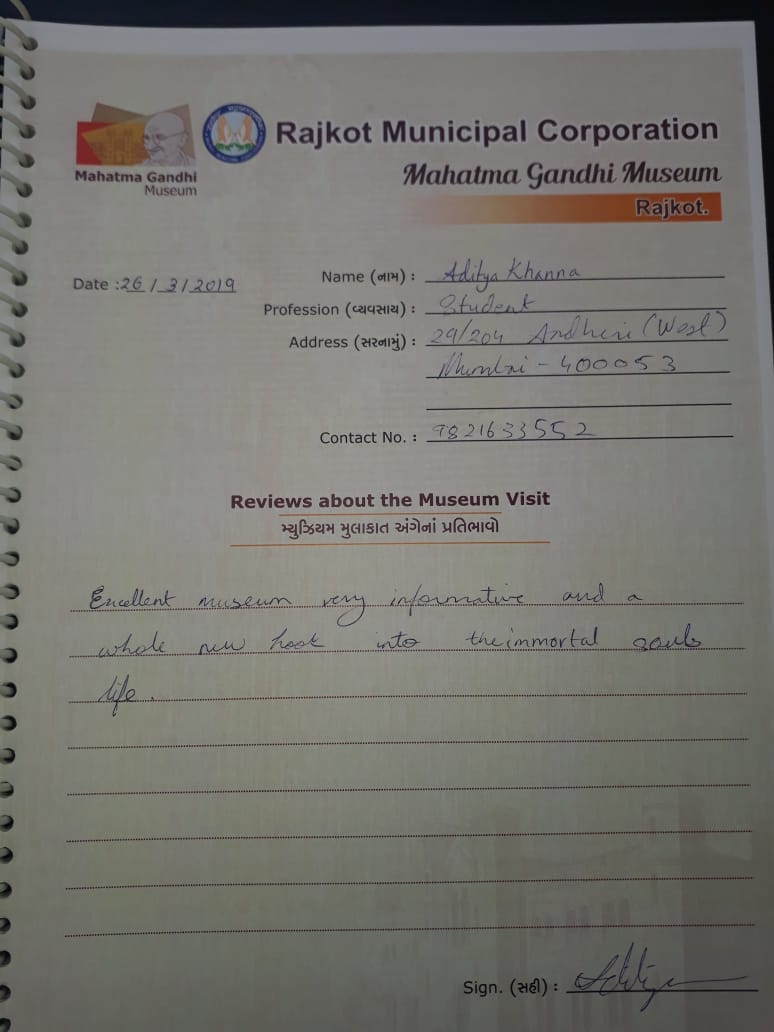 Mahatma Gandhi
Museum
Rajkot Municipal Corporation
Mahatma Gandhi Museum
Rajkot.
Date : 26 / 3 / 2019
Name (નામ) : Aditya Khanna
Profession (વ્યવસાય) : Student
Address (સરનામું) : 29/204 Andheri (West)
Mumbai - 400053
Contact No. : 9821633552
Reviews about the Museum Visit
મ્યુઝિયમ મુલાકાત અંગેનાં પ્રતિભાવો
Excellent museum very informative and a
whole new look into the immortal souls
life.
Sign. (સહી) : Aditya